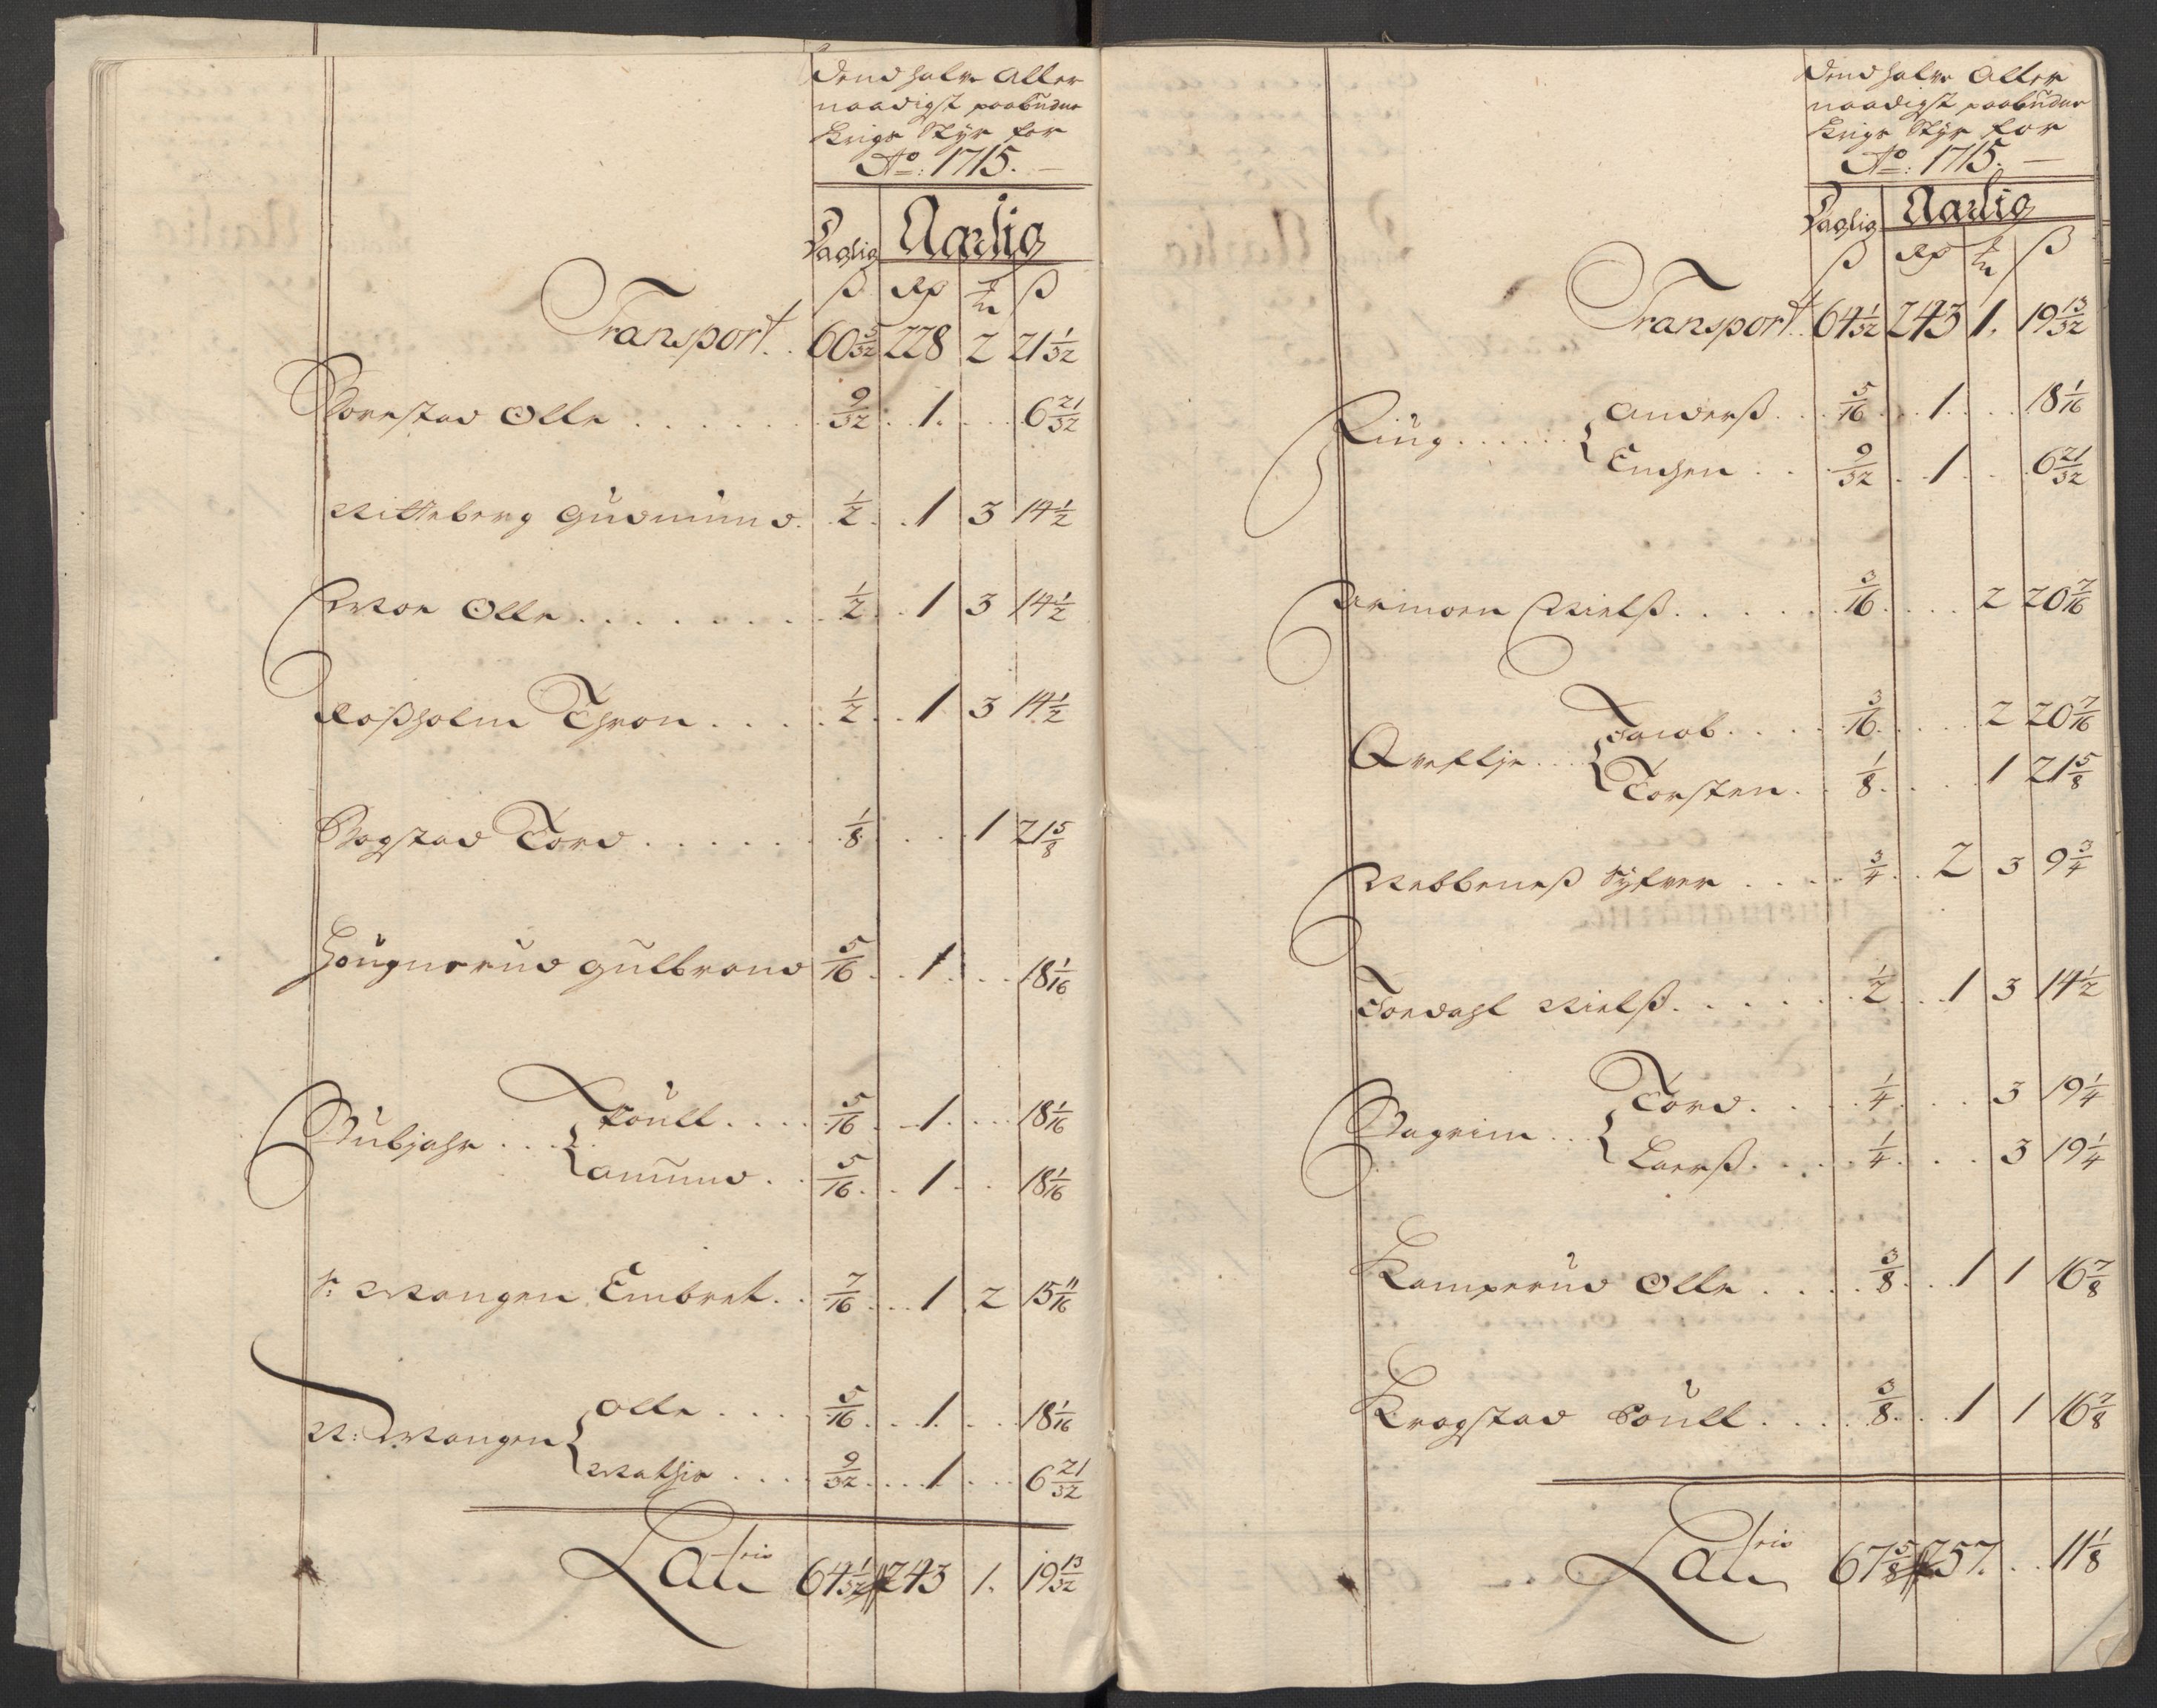 Dend halve Aller
naadigst paabudne
Krigs Styr for
Ao: 1715.
Daglig Aarlig
ß Rp ß
Transport. 60 5/32 228 2 21 1/32
Olle 9/32 1 6 21/32
Mitteberg Gudmund 1/2 1 3 14 1/2
Olle 1/2 1 3 14 1/2
Roßholm Thron 1/2 1 3 14 1/2
Bogstad Tord 1/8 1 21 5/8
Hougnerud Gulbrand 5/16 1 18 1/16
Poull 5/16 1 18 1/16
Amund 5/16 1 18 1/16
S: Mangen Embret 7/16 1 2 15 11/16
Olle 5/16 1 18 1/16
N: Mangen
Mathis 9/32 1 6 21/32
Latris 64 1/32 243 1. 19 13/32
Dend halve Aller
naadigst paabudne
Krigs Styr for
Ao: 1715.
Daglig Aarlig
ß Rp ß
Transport 64 1/32 243 1. 19 13/32
Anderß 5/16 1 18 1/16
Ring
9/32 1 6 21/32
Nielß 3/16 2 20 7/16
Jacob 3/16 2 20 7/16
Torsten 1/8 1 21 5/8
Mebbeneß Syfver 3/4 2 3 9 3/4
Tordahl Nielß 1/2 1 3 14 1/2
Tord 1/4 3 19 1/4
Larß 1/4 3 19 1/4
Kamperud Olle 3/8 1 1 16 7/8
Krogstad Poull 3/8 1 1 16 7/8
Latris 67 5/8 257. 11 1/8